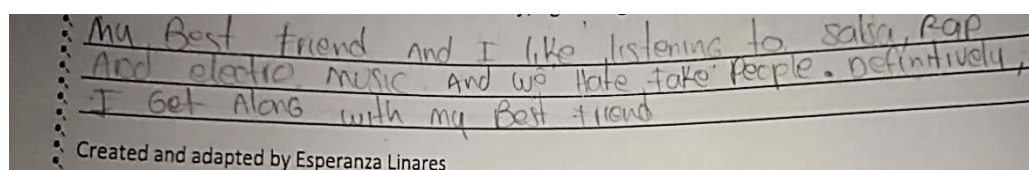 My Best friend And I like listening to salsa, Rap
And electro music And we Hate fake People. Definitively,
I Get Along with my Best friend
Created and adapted by Esperanza Linares